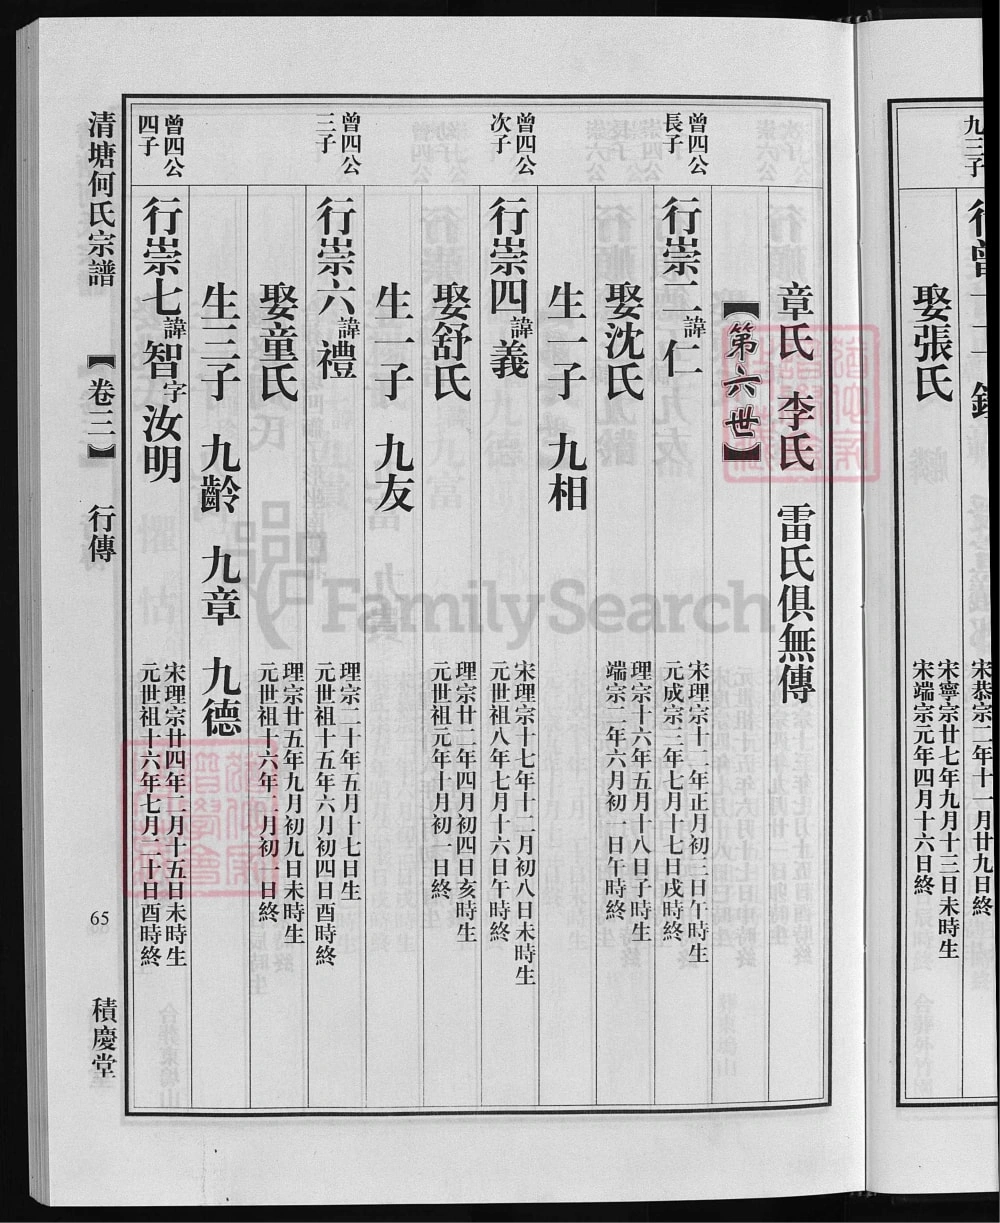 九三子
娶張氏
宋恭宗二年十一月廿九日終
宋寧宗廿七年九月十三日未時生
宋端宗元年四月十六日終
章氏 李氏 雷氏俱無傳
【第六世】
曾四公
長子
行崇二諱仁
宋理宗十一年正月初三日午時生
元成宗三年七月十七日戌時終
娶沈氏
理宗十六年五月十八日子時生
端宗二年六月初一日午時終
生一子 九相
曾四公
次子
行崇四諱義
宋理宗十七年十二月初八日未時生
元世祖八年七月十六日午時終
娶舒氏
理宗廿二年四月初四日亥時生
元世祖元年十月初一日終
生一子 九友
曾四公
三子
行崇六諱禮
理宗二十年五月十七日生
元世祖十五年六月初四日酉時終
娶童氏
理宗廿五年九月初九日未時生
元世祖十六年二月初二日終
生三子 九齡 九章 九德
曾四公
四子
行崇七諱智字汝明
宋理宗廿四年二月十五日未時生
元世祖十六年七月二十日酉時終
清塘何氏宗譜
【卷三】
行傳
65
積慶堂
FamilySearch